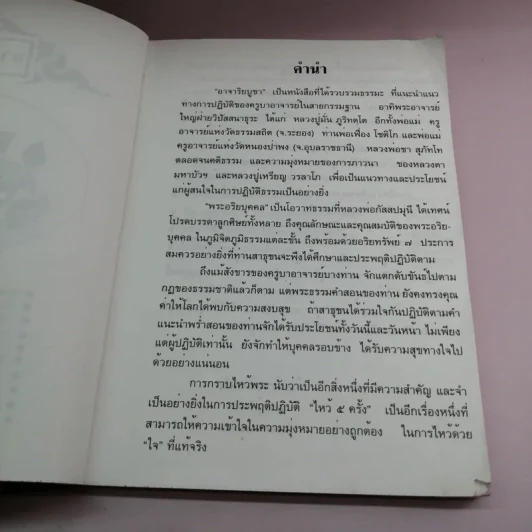 คำนำ
"อาจาริยบูชา" เป็นหนังสือที่ได้รวบรวมธรรมะ ที่แนะนำแนว
ทางการปฏิบัติของครูบาอาจารย์ในสายกรรมฐาน อาทิพระอาจารย์
ใหญ่ฝ่ายวิปัสสนาธุระ ได้แก่ หลวงปู่มั่น ภูริทตฺโต อีกทั้งพ่อแม่ ครู
อาจารย์แห่งวัดธรรมสถิต (จ.ระยอง) ท่านพ่อเฟื่อง โชติโก และพ่อแม่
ครูอาจารย์แห่งวัดหนองป่าพง (จ.อุบลราชธานี) หลวงพ่อชา สุภัทโท
ตลอดจนคติธรรม และความมุ่งหมายของการภาวนา ของหลวงตา
มหาบัวฯ และหลวงปู่เหรียญ วรลาโภ เพื่อเป็นแนวทางและประโยชน์
แก่ผู้สนใจในการปฏิบัติธรรมเป็นอย่างยิ่ง
"พระอริยบุคคล" เป็นโอวาทธรรมที่หลวงพ่อกัสสปมุนี ได้เทศน์
โปรดบรรดาลูกศิษย์ทั้งหลาย ถึงคุณลักษณะและคุณสมบัติของพระอริย-
บุคคล ในภูมิจิตภูมิธรรมแต่ละชั้น ถึงพร้อมด้วยอริยทรัพย์ ๗ ประการ
สมควรอย่างยิ่งที่ท่านสาธุชนจะพึงได้ศึกษาและประพฤติปฏิบัติตาม
ถึงแม้สังขารของครูบาอาจารย์บางท่าน จักแตกดับขันธ์ไปตาม
กฎของธรรมชาติแล้วก็ตาม แต่พระธรรมคำสอนของท่าน ยังคงทรงคุณ
ค่าให้โลกได้พบกับความสงบสุข ถ้าสาธุชนได้ร่วมใจกันปฏิบัติตามคำ
แนะนำพร่ำสอนของท่านจักได้รับประโยชน์ทั้งวันนี้และวันหน้า ไม่เพียง
แต่ผู้ปฏิบัติเท่านั้น ยังจักทำให้บุคคลรอบข้าง ได้รับความสุขทางใจไป
ด้วยอย่างแน่นอน
การกราบไหว้พระ นับว่าเป็นอีกสิ่งหนึ่งที่มีความสำคัญ และจำ
เป็นอย่างยิ่งในการประพฤติปฏิบัติ "ไหว้ ๕ ครั้ง" เป็นอีกเรื่องหนึ่งที่
สามารถให้ความเข้าใจในความมุ่งหมายอย่างถูกต้อง ในการไหว้ด้วย
"ใจ" ที่แท้จริง